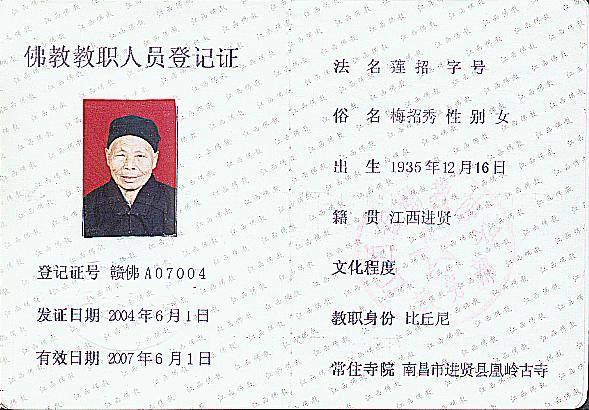 佛教教职人员登记证
登记证号 赣佛A07004
发证日期 2004年6月1日
有效日期 2007年6月1日
法 名 莲 招 字 号
俗 名 梅招秀 性 别 女
出 生 1935年12月16日
籍 贯 江西进贤
文化程度
教职身份 比丘尼
常住寺院 南昌市进贤县凰岭古寺